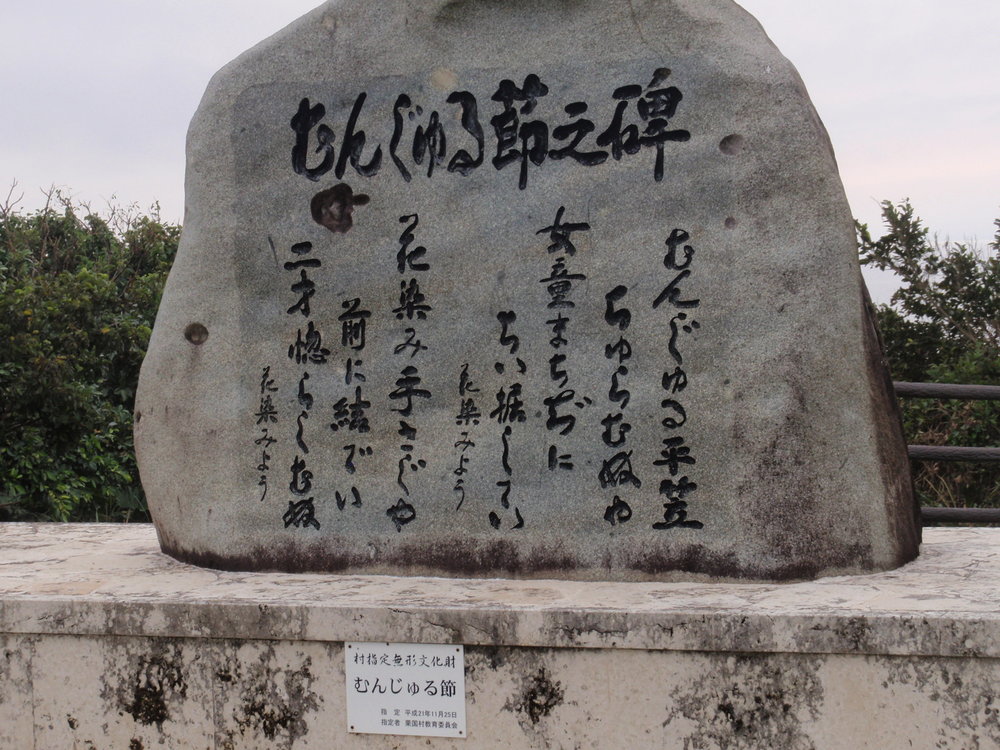 むんじゅる節之碑
むんじゅる平笠
ちゅらむぬや
女童まちぢに
ちい据してい
花染みよう
花染み手さじや
前に結でい
二才惚らしむぬ
花染みよう
村指定無形文化財
むんじゅる節
指 定 平成21年11月25日
指定者 粟国村教育委員会